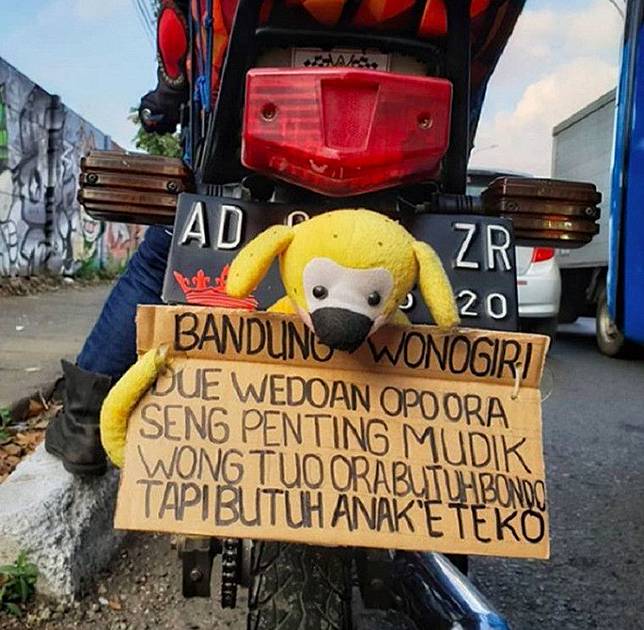 AD ZR
20
BANDUNG WONOGIRI
DUE WEDOAN OPO ORA
SENG PENTING MUDIK
WONG TUO ORA BUTUH BONDO
TAPI BUTUH ANAK'E TEKO